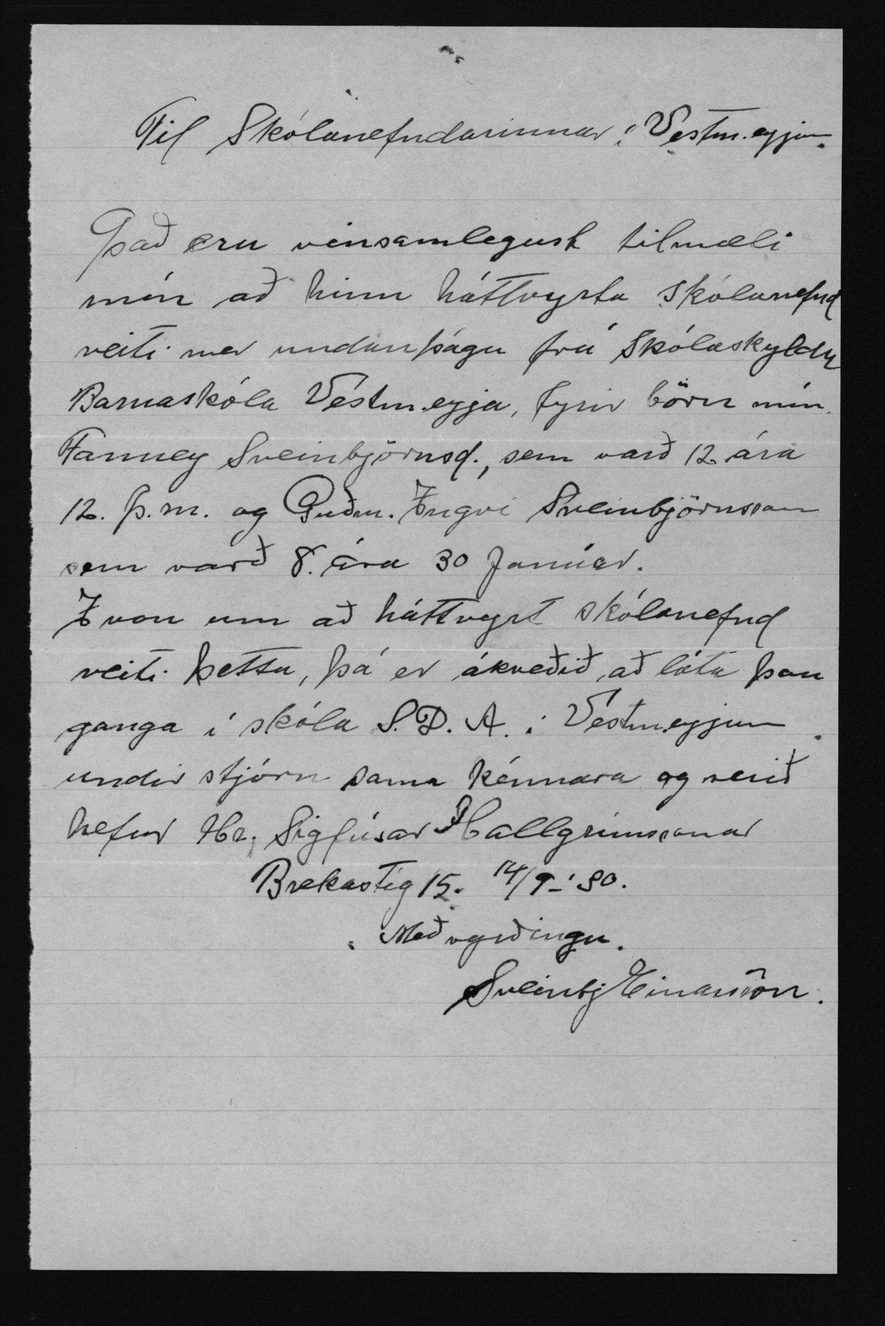 Til Skólanefndarinnar í Vestm.eyjum.
Það eru vinsamlegust tilmæli
mín að hinn háttvyrta skólanefnd
veiti mer undanþágu frá skólaskyldu
Barnaskóla Vestm.eyja, fyrir börn mín
Fanney Sveinbjörnsd., sem varð 12 ára
12. þ.m. og Guðm. Ingvi Sveinbjörnsson
sem varð 8. ára 30 Janúar.
Í von um að háttvyrt skólanefnd
veiti þetta, þá er ákveðið, að láta þau
ganga í skóla S.D.A. í Vestm.eyjum
undir stjórn sama kénnara og verið
hefur Hr. Sigfúsar Hallgrímssonar
Brekastíg 15. 14/9-'30.
Með vyrðingu.
Sveinbj Einarsson.